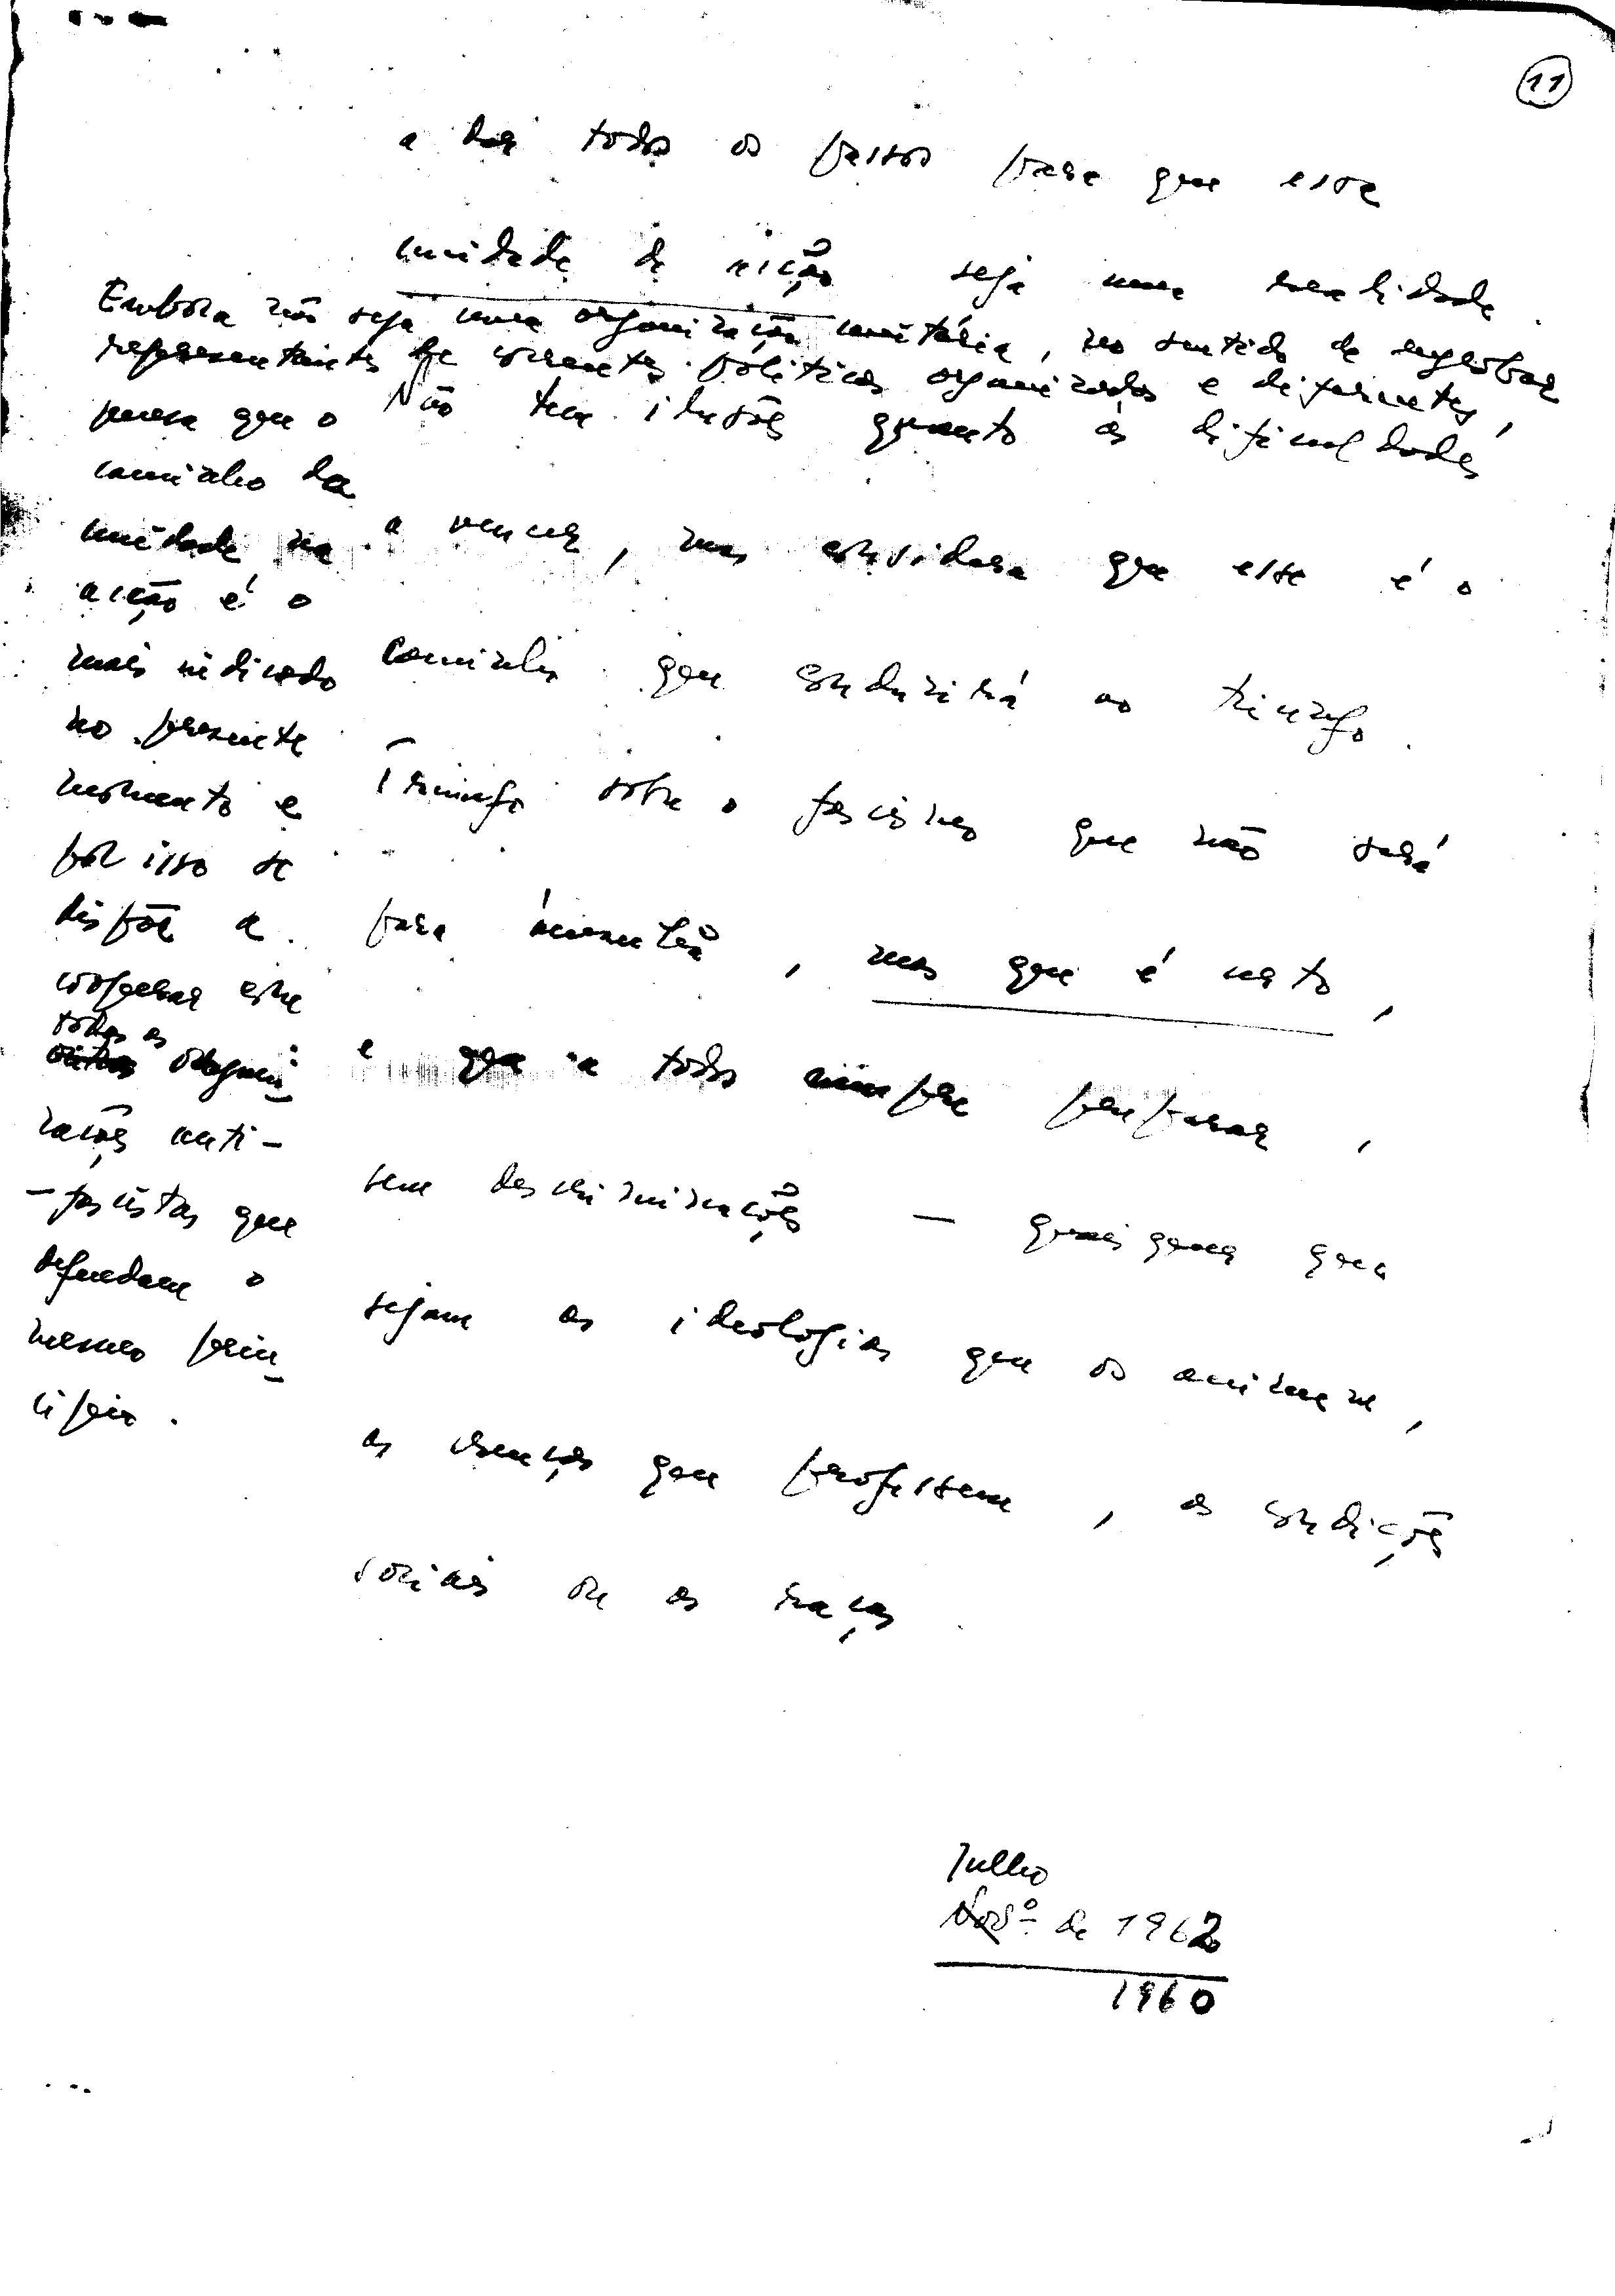 11
a dar todos os passos para que essa
unidade de acção seja uma realidade.
Embora não seja uma organização unitária, no sentido de englobar
representantes de correntes políticas organizadas e diferentes,
pensa que o
caminho da
unidade na
acção é o
mais indicado
no presente
momento e
por isso se
dispõe a
cooperar com
todas as
organi-
zações anti-
-fascistas que
defendam o
mesmo prin-
cípio.
Não tem ilusões quanto às dificuldades
a vencer, mas considera que esse é o
caminho que conduzirá ao triunfo.
Triunfo sobre o fascismo que não será
para amanhã, mas que é certo,
e que a todos cumpre preparar,
sem descriminações — quaisquer que
sejam as ideologias que os animem,
as crenças que professem, as condições
sociais ou as raças.
Julho
Novº de 1962
1960